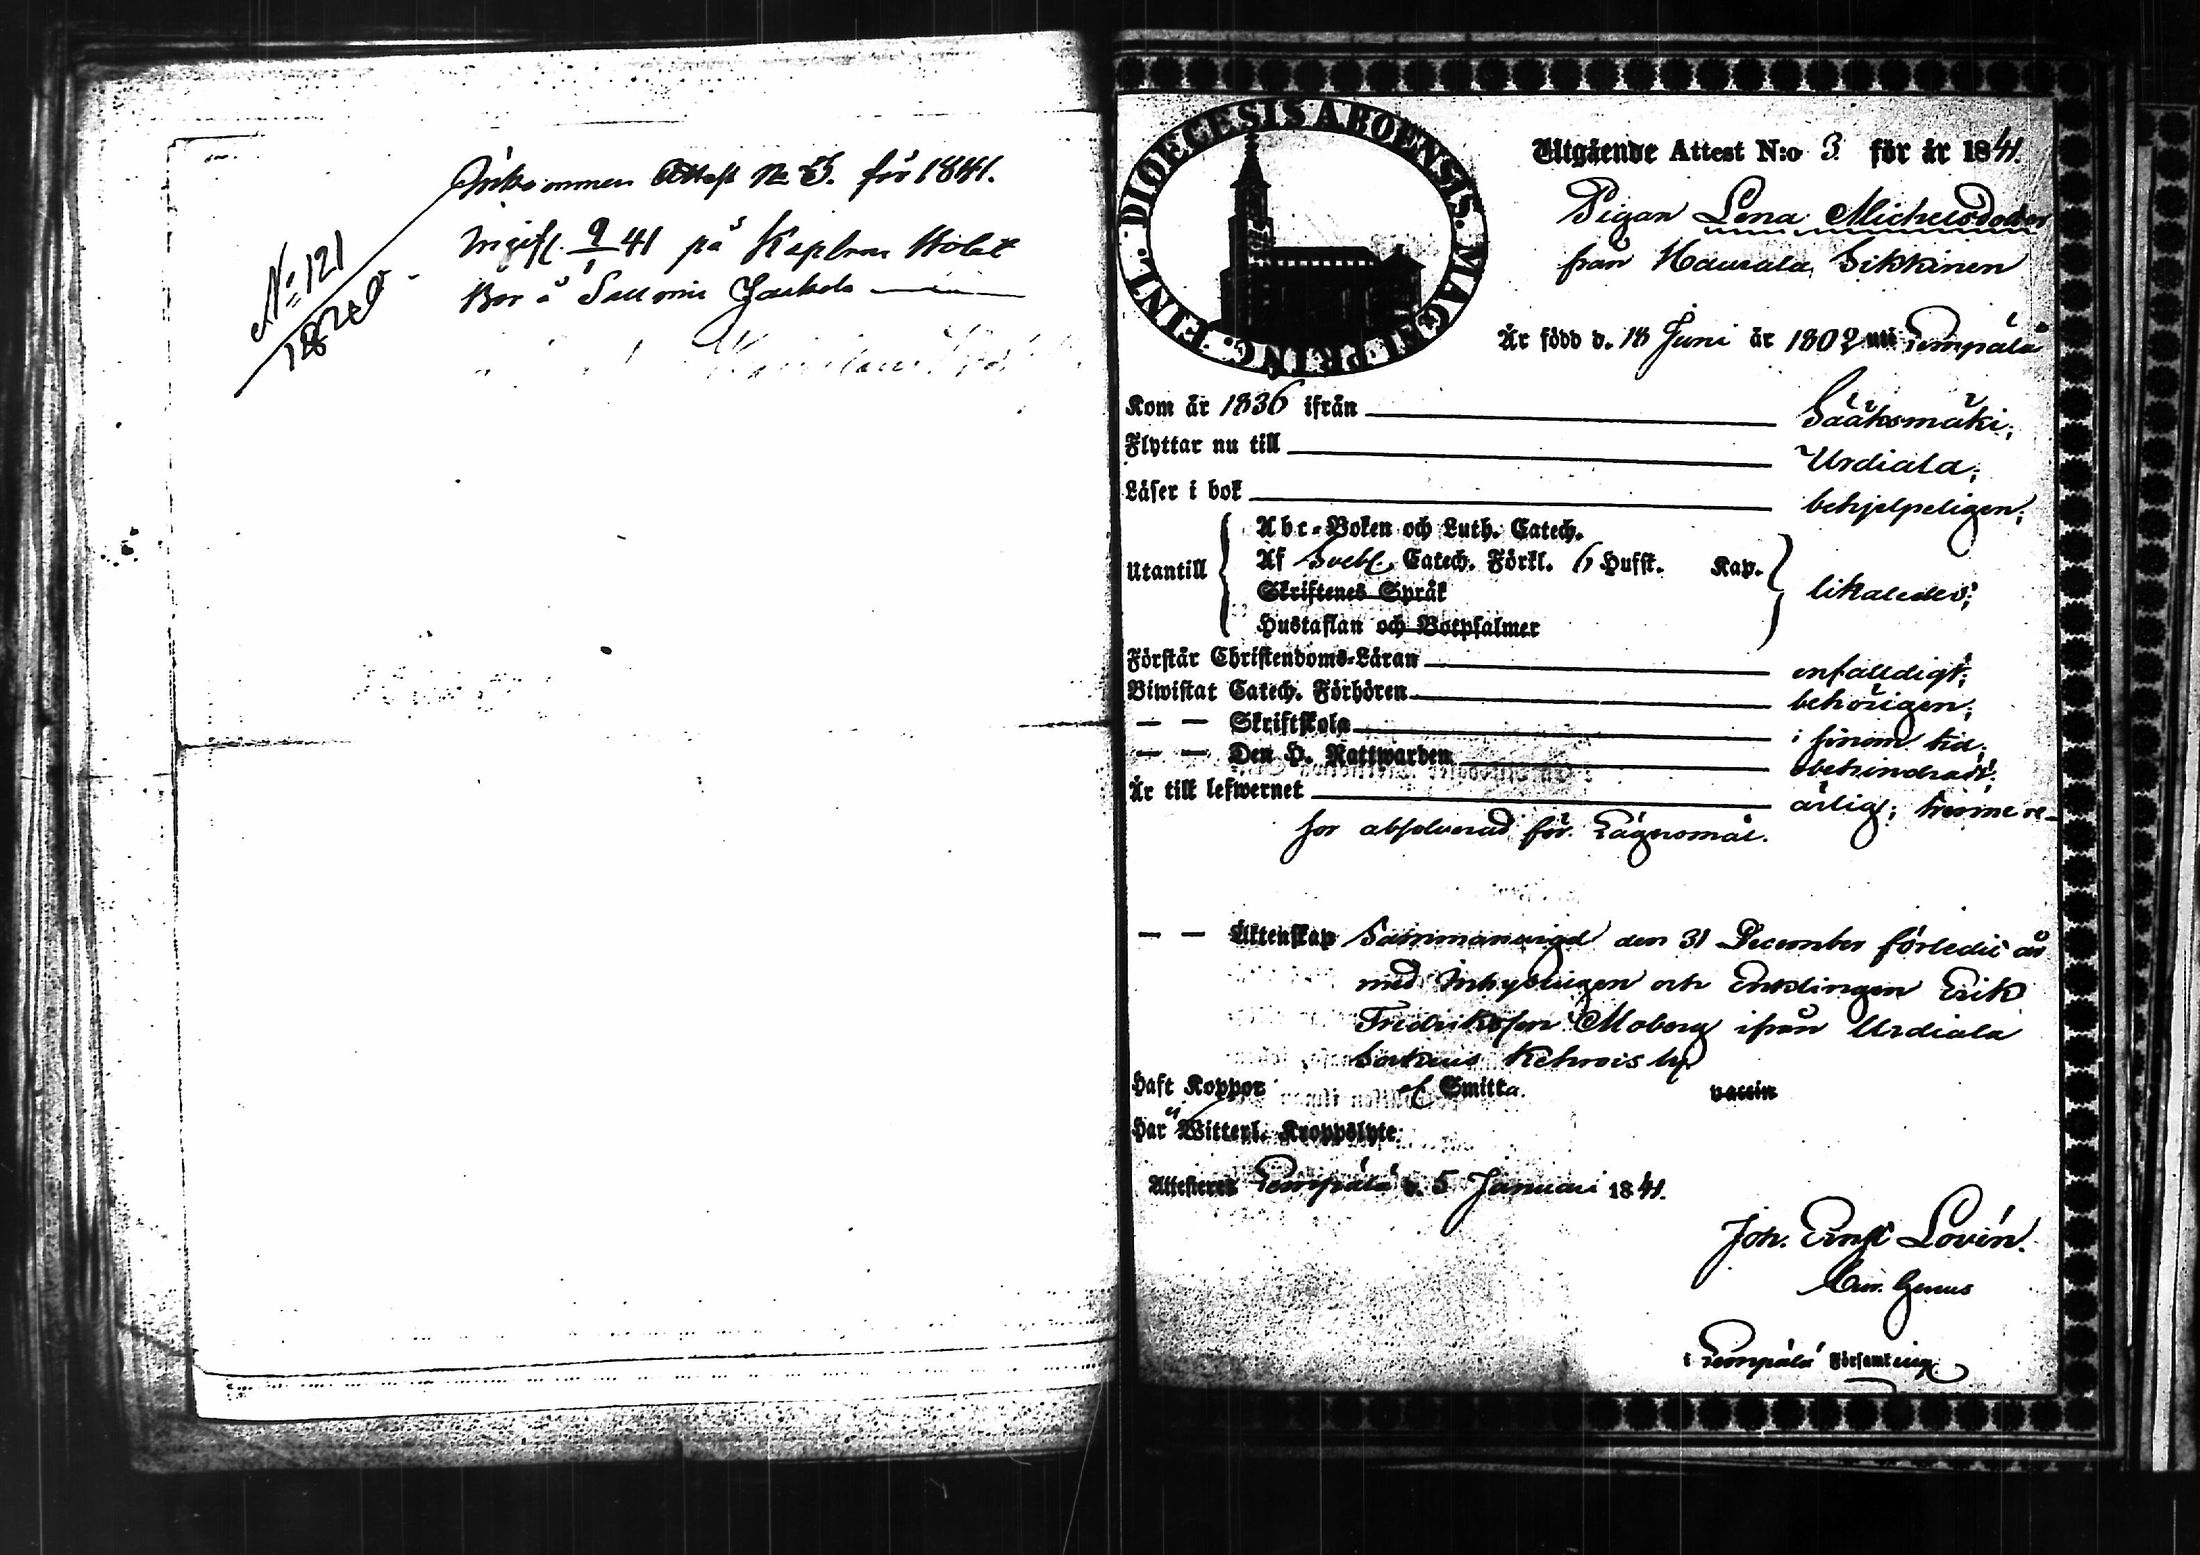 Inkommen Attest No 3. för 1841.
No 121
41 på Kaplans
Bor å
DIOECESIS ABOENSIS. MAGNI PRINC. FINL.
Utgående Attest N:o 3. för år 1841.
Pigan Lena Michelsdotter
från Haurala, Sikkinen
Är född d. 18 Juni år 1802 uti Lempälä
Kom år 1836 ifrån Sääksmäki;
Flyttar nu till Urdiala;
Läser i bok behjelpeligen;
Abc-Boken och Luth. Catech.
Utantill Af Sveb. Catech. Förkl. 6 Hufst. Kap. likaledes;
Skriftenes Språk
Hustaflan och Botpsalmer
Förstår Christendoms-Läran enfalldigt;
Biwistat Catech. Förhören behörigen;
— — Skriftskola i sinom tid;
— — Den H. Nattwarden obehindrad;
Är till lefwernet ärlig; trenne re-
sor absolverad för Lägersmål.
— — Äktenskap Sammanvigd den 31 December förledit år
med Inhysingen och Enklingen Erik
Fredriksson Moberg ifrån Urdiala
Sockens Kehrois by
Haft Koppor af Smitta. vaccin
Har Witterl. Kroppslyte:
Attesteres Lempälä d. 5 Januari 1841.
Joh. Ernst Lovén.
i Lempälä Församling